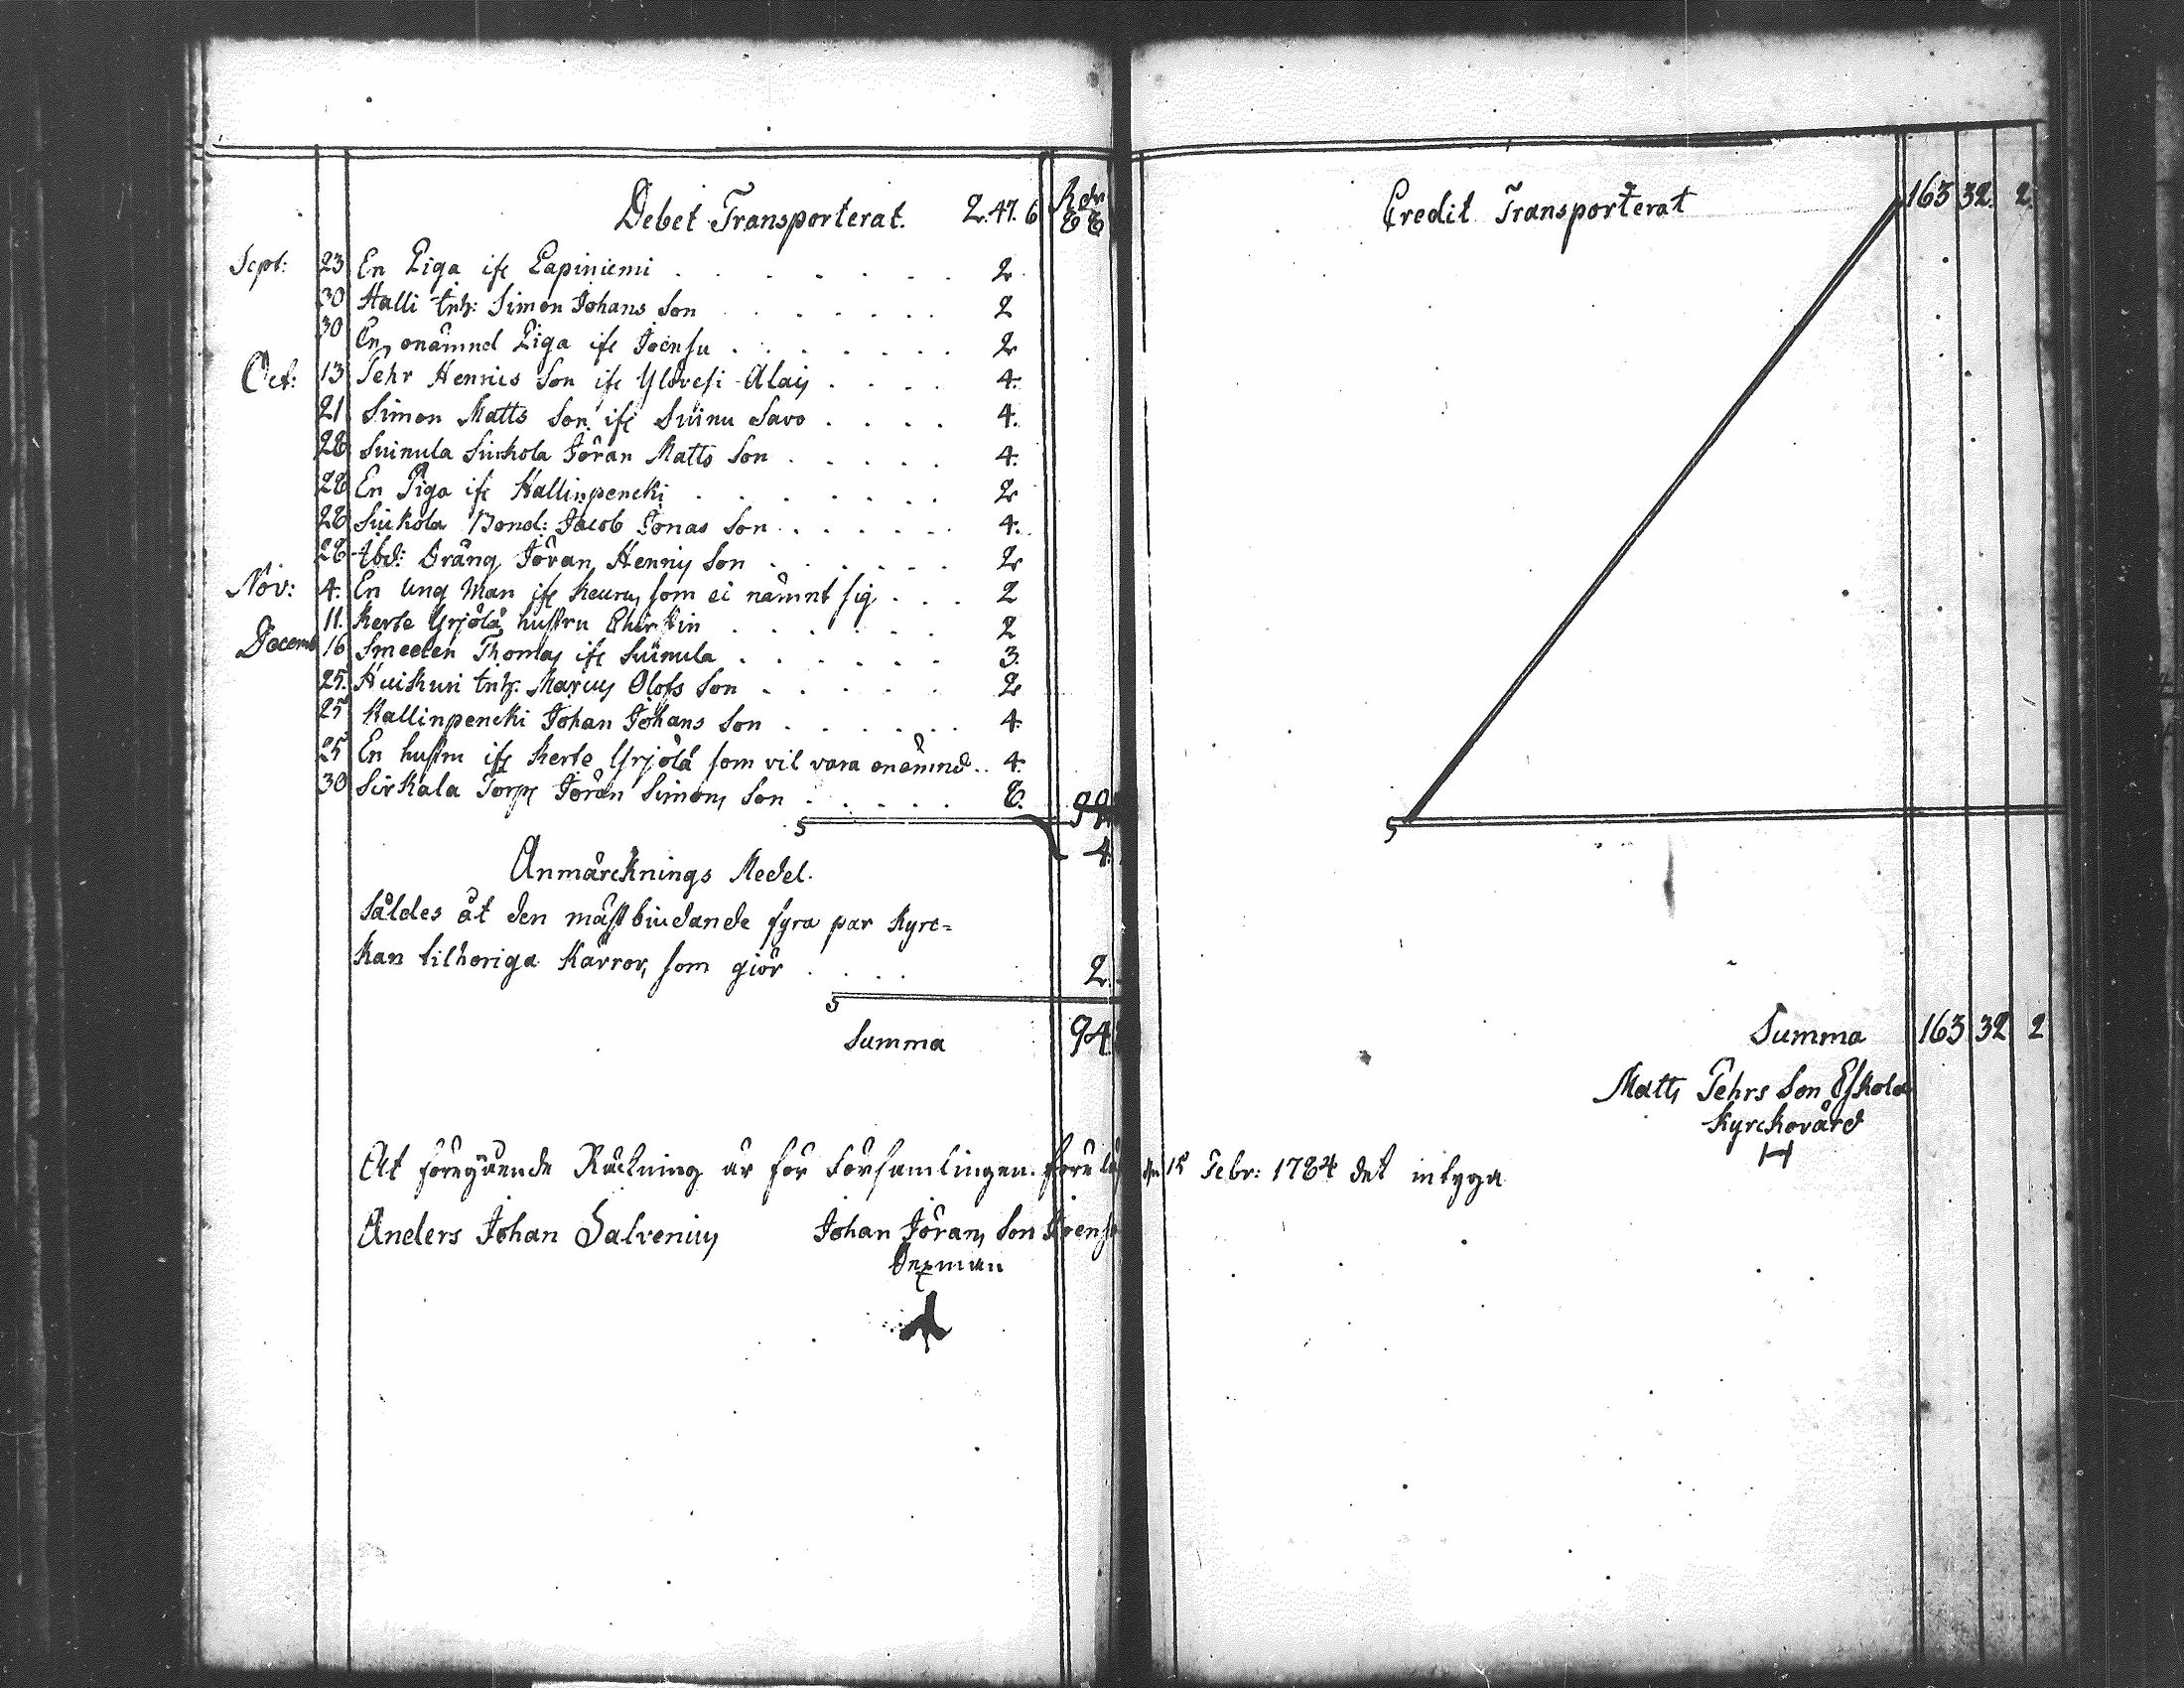 Debet Transporterat. 2. 47. 6 Rdr
Sept: 23 En Piga ifr Lapiniemi . . . . . . . 2
30 Halli Inh: Simon Johans Son . . . . . . 2
30 En onämnd Piga ifr Joensu . . . . . . . 2
Oct: 13 Pehr Hennics Son ifr Ylövesi Alas . . . . 4.
21 Simon Matts Son ifr Suinu Savo . . . . 4.
28 Suinula Sirkola Jöran Matts Son . . . . . 4.
28 En Piga ifr Hallinpencki . . . . . . . 2
28 Sirkola Bond: Jacob Jonas Son . . . . . . 4.
28 Ibd: Dräng Jöran Hennis Son . . . . . . 2
Nov: 4. En ung Man ifr Keuru, som ei nämnt sig . . . 2
11. Kerte Yrjölä hustru . . . . . . 2
Decemb 16 Thomas ifr Suinula . . . . . . 3.
25. Huikuri Inh: Marcus Olofs Son . . . . . 2
25 Hallinpencki Johan Johans Son . . . . . . 4.
25 En hustru ifr Kerte Yrjölä som vil vara onämnd . . 4.
30 Sirkala Torp Jöran Simons Son . . . . . 8.
4.
Anmärcknings Medel.
Såldes åt den mästbiudande fyra par Kyrc=
kan tilhöriga Kärror, som giör . . . . 2.
Summa 94
Credit Transporterat 163 32. 2.
Summa 163 32 2
Matts Pehrs Son Eskola
Kyrckovärd
H
At föregående Räckning är för Församlingen den 15 Febr: 1784 det intyga
Anders Johan Salvenius Johan Jörans Son